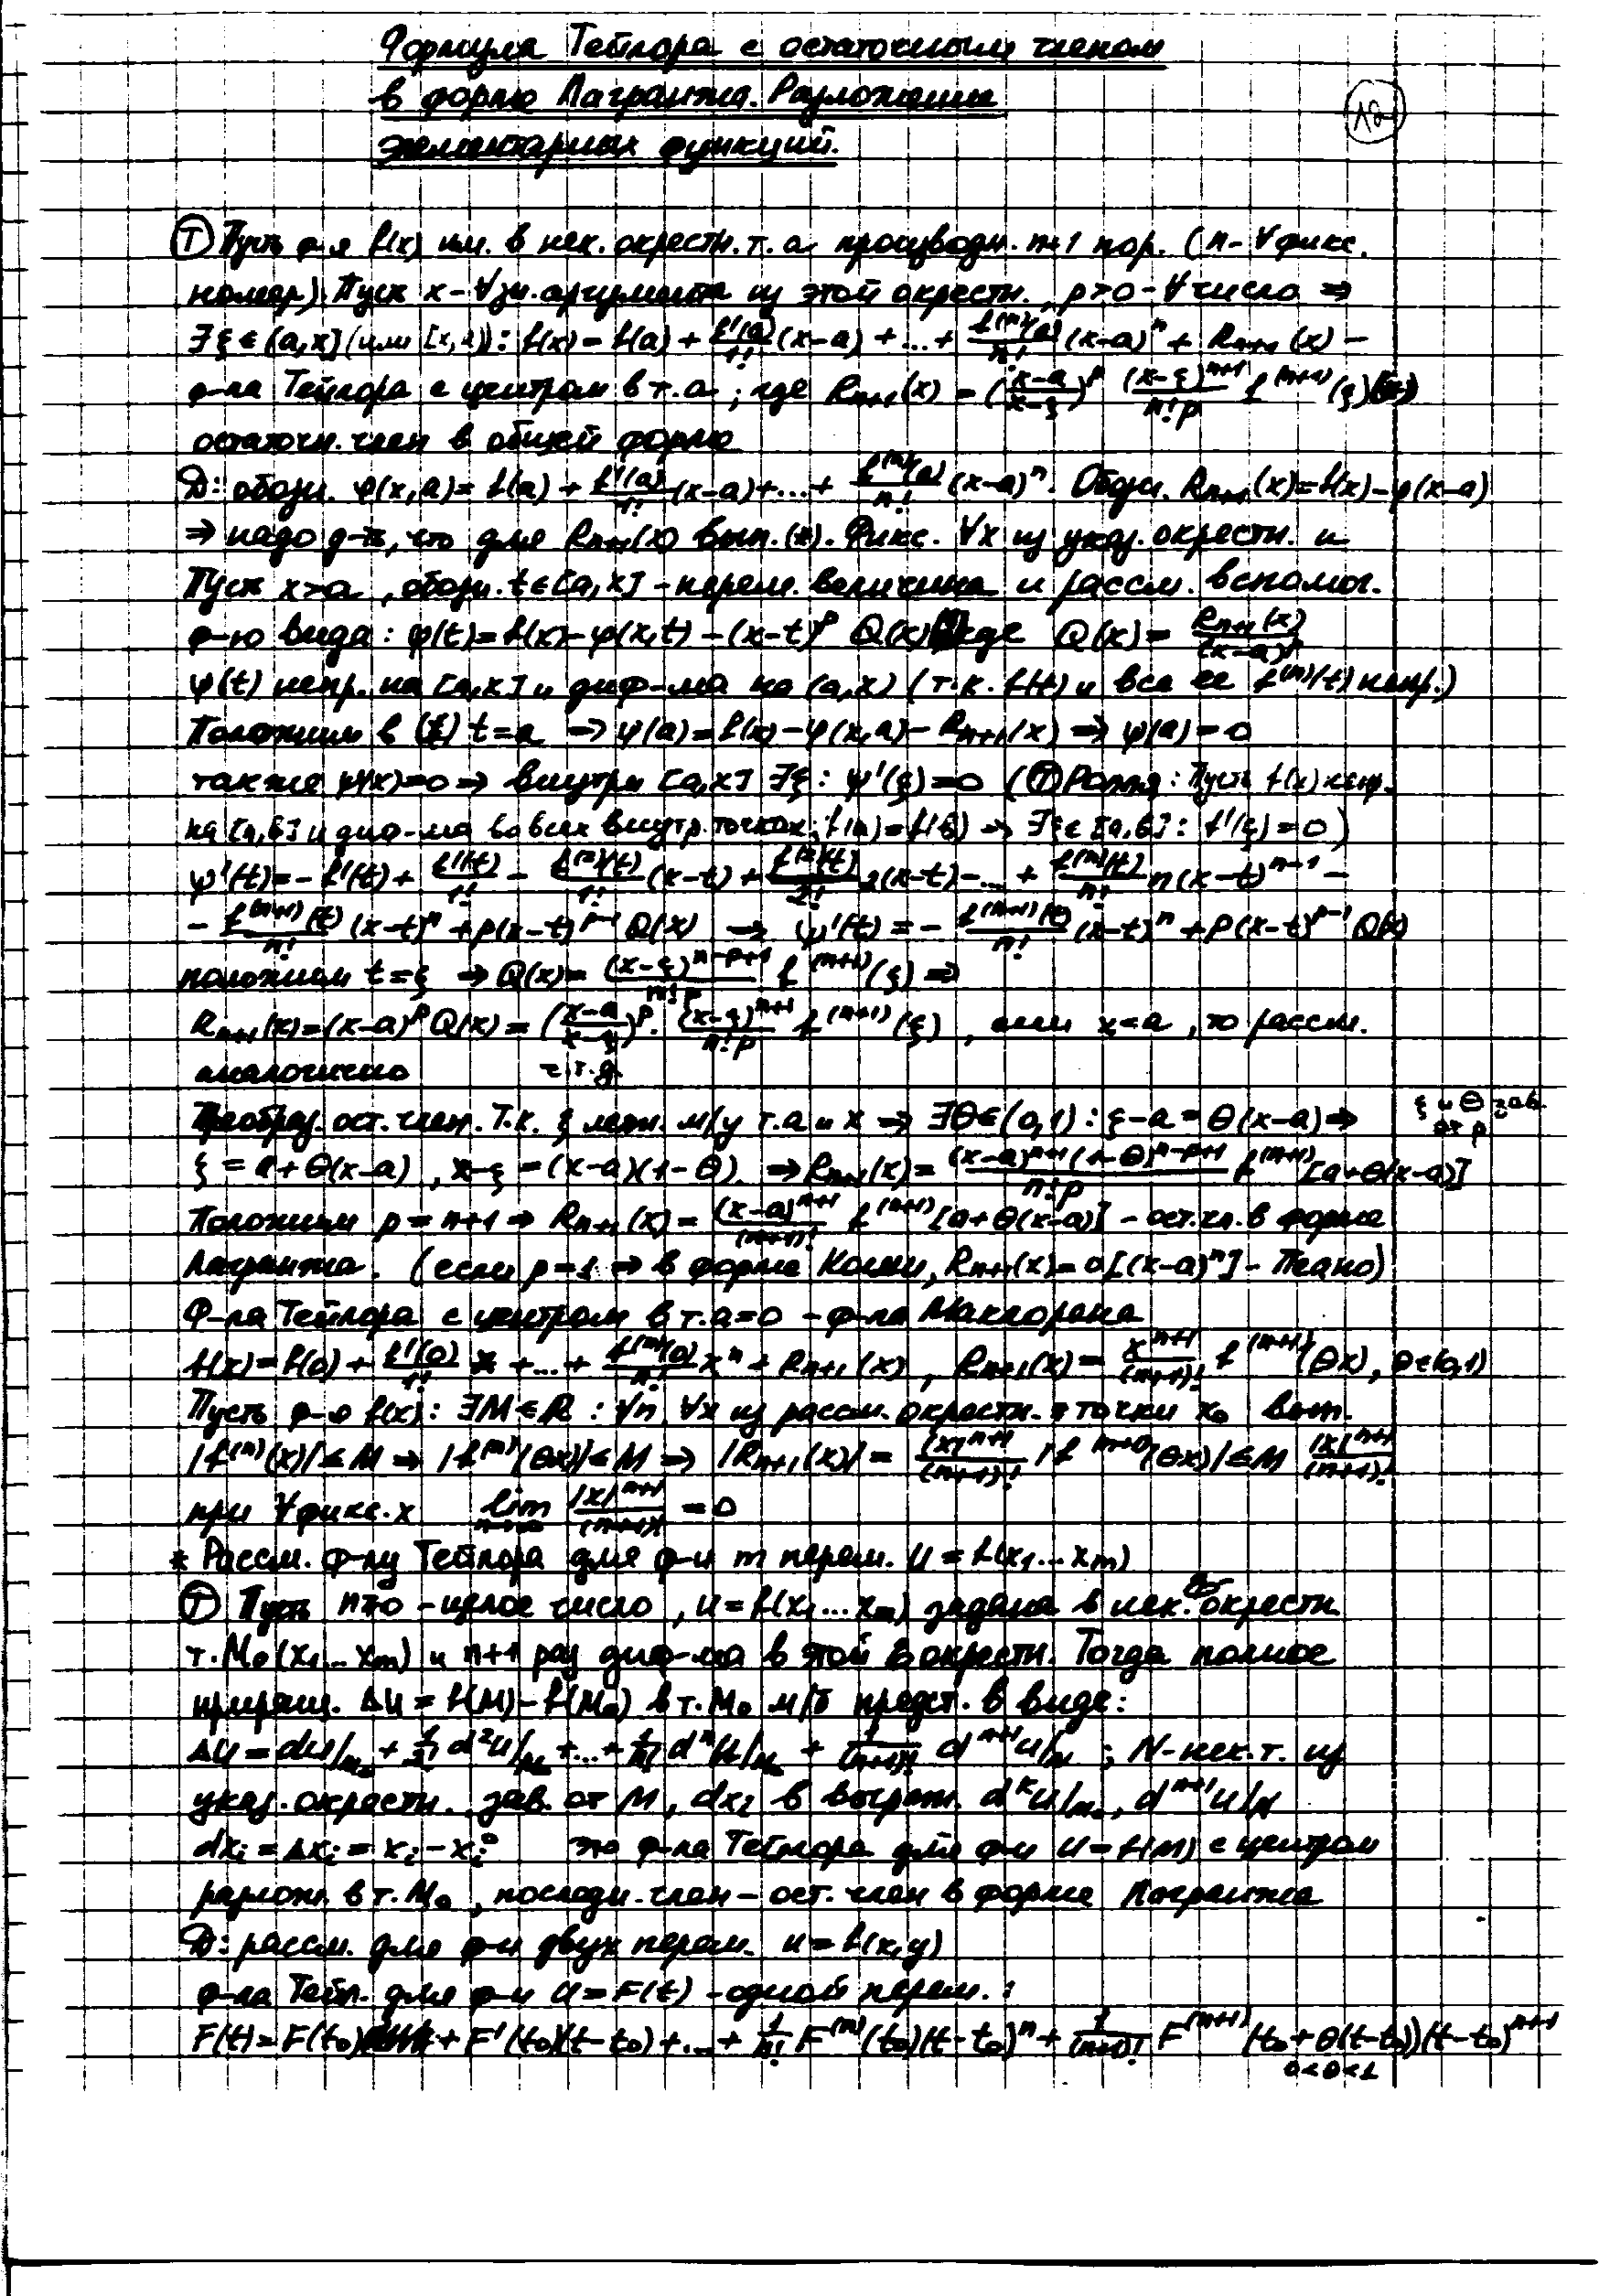 Формула Тейлора с остаточным членом
в форме Лагранжа. Разложение
элементарных функций.
Ⓣ Пусть ф-я f(x) им. в нек. окрестн. т. a производн. n+1 пор. (n - ∀ фикс.
номер). Пусть x - ∀ зн. аргумента из этой окрестн., p>0 - ∀ число ⇒
∃ξ∈(a,x] (или [x,a)): f(x) = f(a) + f'(a)/1! (x-a) + ... + f^(n)(a)/n! (x-a)^n + R_{n+1}(x) -
ф-ла Тейлора с центром в т. a; где R_{n+1}(x) = ((x-a)/(x-ξ))^p (x-ξ)^{n+1}/(n!p) f^(n+1)(ξ) (*)
остаточн. член в общей форме
Д: обозн. φ(x,a) = f(a) + f'(a)/1! (x-a) + ... + f^(n)(a)/n! (x-a)^n. Обозн. R_{n+1}(x) = f(x) - φ(x-a)
⇒ надо д-ть, что для R_{n+1}(x) вып. (*). Фикс. ∀x из указ. окрестн. и
Пусть x>a, обозн. t∈[a,x] - перем. величина и рассм. вспомог.
ф-ю вида: ψ(t) = f(x) - φ(x,t) - (x-t)^p Q(x) где Q(x) = R_{n+1}(x)/(x-a)^p
ψ(t) непр. на [a,x] и диф-ма на (a,x) (т.к. f(t) и все ее f^(n)(t) непр.)
Положим в t=a ⇒ ψ(a) = f(x) - φ(x,a) - R_{n+1}(x) ⇒ ψ(a) = 0
также ψ(x)=0 ⇒ внутри [a,x] ∃ξ: ψ'(ξ)=0 (Ⓣ Ролля: Пусть f(x) непр.
на [a,b] и диф-ма во всех внутр. точках; f(a)=f(b) ⇒ ∃ξ∈[a,b]: f'(ξ)=0)
ψ'(t) = -f'(t) + f'(t)/1! - f^(2)(t)/1! (x-t) + f^(2)(t)/2! 2(x-t) - ... + f^(n)(t)/n! n(x-t)^{n-1} -
- f^(n+1)(t)/n! (x-t)^n + p(x-t)^{p-1} Q(x) ⇒ ψ'(t) = - f^(n+1)(t)/n! (x-t)^n + p(x-t)^{p-1} Q(x)
положим t=ξ ⇒ Q(x) = (x-ξ)^{n-p+1}/(n!p) f^(n+1)(ξ) ⇒
R_{n+1}(x) = (x-a)^p Q(x) = ((x-a)/(x-ξ))^p · (x-ξ)^{n+1}/(n!p) f^(n+1)(ξ), если x<a, то рассм.
аналогично ч.т.д.
Преобраз. ост. член. Т.к. ξ лежит м/у т. a и x ⇒ ∃θ∈(0,1): ξ-a = θ(x-a) ⇒ ξ и θ зав. от p
ξ = a+θ(x-a), x-ξ = (x-a)(1-θ) ⇒ R_{n+1}(x) = (x-a)^{n+1}(1-θ)^{n-p+1}/(n!p) f^(n+1)[a+θ(x-a)]
Положим p = n+1 ⇒ R_{n+1}(x) = (x-a)^{n+1}/(n+1)! f^(n+1)[a+θ(x-a)] - ост. чл. в форме
Лагранжа. (если p=1 ⇒ в форме Коши, R_{n+1}(x) = o[(x-a)^n] - Пеано)
Ф-ла Тейлора с центром в т. a=0 - ф-ла Маклорена
f(x) = f(0) + f'(0)/1! x + ... + f^(n)(0)/n! x^n + R_{n+1}(x), R_{n+1}(x) = x^{n+1}/(n+1)! f^(n+1)(θx), θ∈(0,1)
Пусть ф-я f(x): ∃M∈R: ∀n, ∀x из рассм. окрестн. точки x₀ вып.
|f^(n)(x)| ≤ M ⇒ |f^(n)(θx)| ≤ M ⇒ |R_{n+1}(x)| = |x|^{n+1}/(n+1)! |f^(n+1)(θx)| ≤ M |x|^{n+1}/(n+1)!
при ∀ фикс. x lim_{n→∞} |x|^{n+1}/(n+1)! = 0
* Рассм. ф-лу Тейлора для ф-и m перем. u = f(x₁...x_m)
Ⓣ Пусть n≥0 - целое число, u = f(x₁...x_m) задана в нек. окрестн.
т. M₀(x₁...x_m) и n+1 раз диф-ма в этой окрестн. Тогда полное
приращ. Δu = f(M) - f(M₀) в т. M₀ м/б предст. в виде:
Δu = du|_{M₀} + 1/2! d²u|_{M₀} + ... + 1/n! d^n u|_{M₀} + 1/(n+1)! d^{n+1}u|_N; N - нек. т. из
указ. окрестн., зав. от M, dx_i в выраж. d^k u|_{M₀}, d^{n+1}u|_N
dx_i = Δx_i = x_i - x_i⁰ это ф-ла Тейлора для ф-и u = f(M) с центром
разлож. в т. M₀, последн. член - ост. член в форме Лагранжа
Д: рассм. для ф-и двух перем. u = f(x,y)
ф-ла Тейл. для ф-и u = F(t) - одной перем.:
F(t) = F(t₀) + F'(t₀)(t-t₀) + ... + 1/n! F^(n)(t₀)(t-t₀)^n + 1/(n+1)! F^(n+1)(t₀+θ(t-t₀))(t-t₀)^{n+1}
0<θ<1